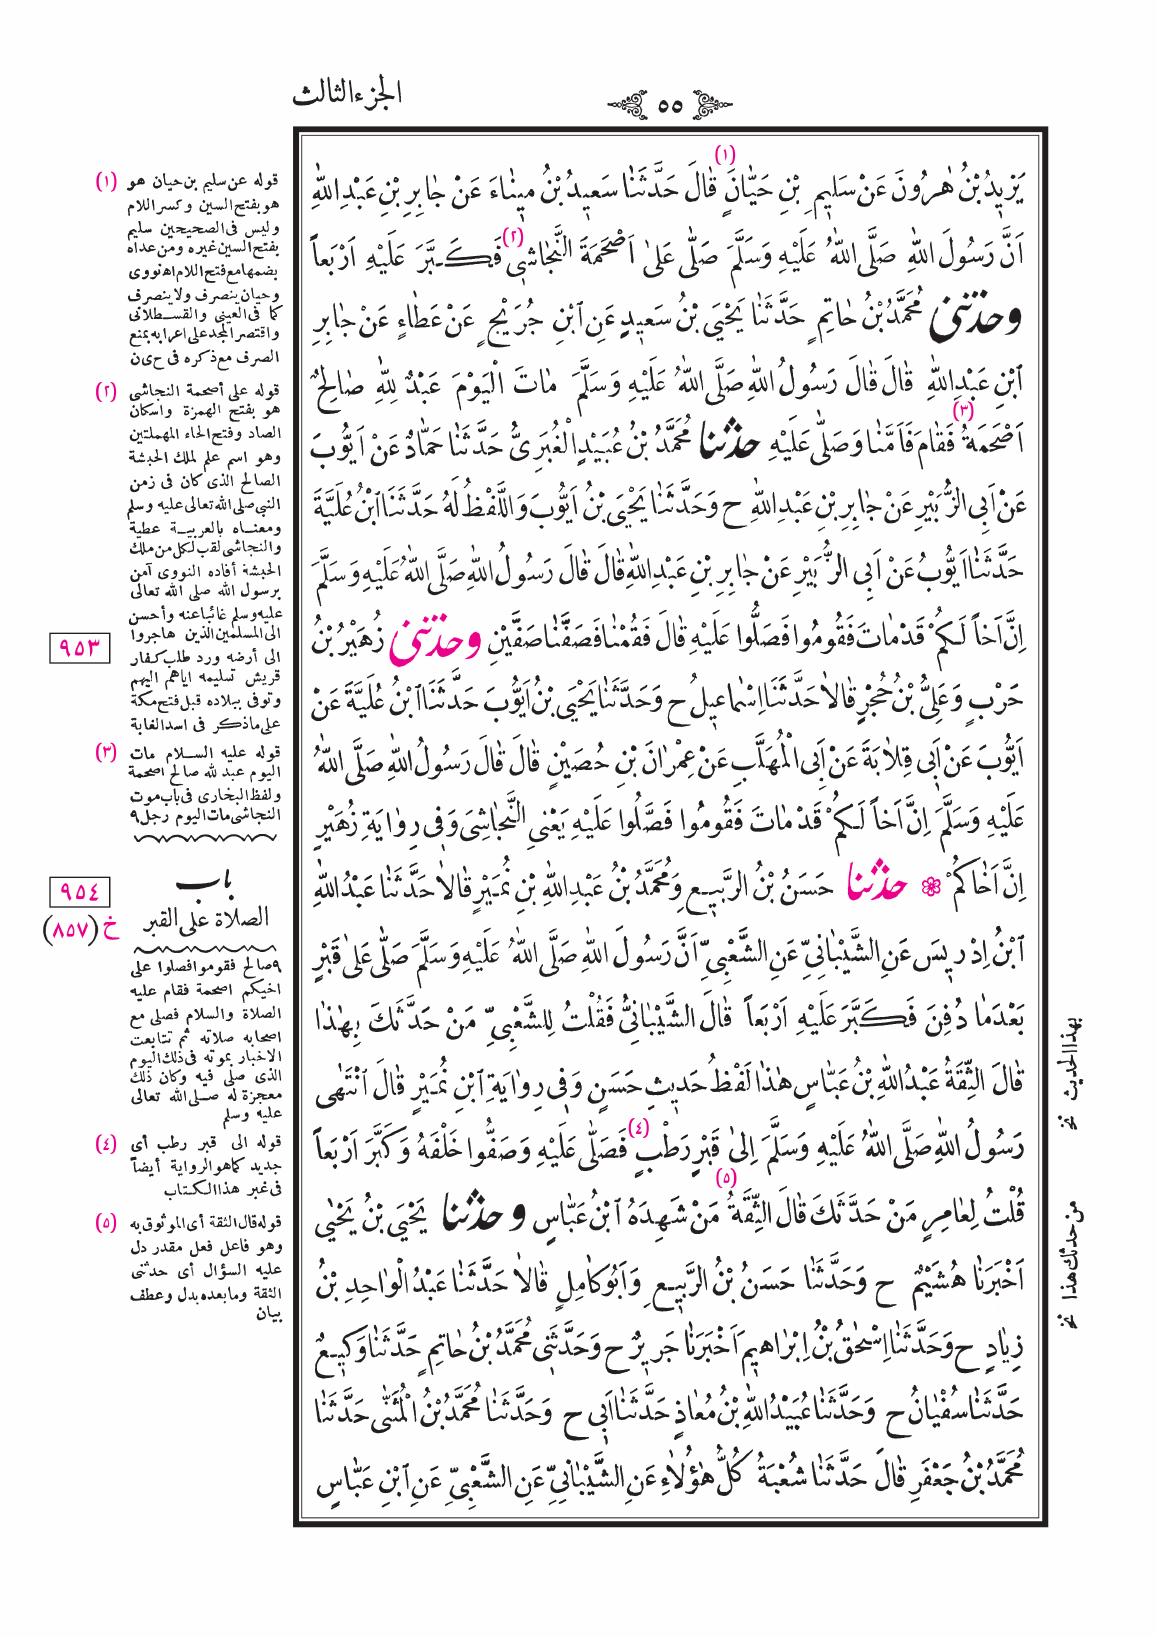 الجزء الثالث
٥٥
يَزِيدُ بْنُ هٰرُونَ عَنْ سَلِيمِ بْنِ حَيَّانٍ (١) قَالَ حَدَّثَنَا سَعِيدُ بْنُ مِينَاءَ عَنْ جَابِرِ بْنِ عَبْدِ اللهِ
اَنَّ رَسُولَ اللهِ صَلَّى اللهُ عَلَيْهِ وَسَلَّمَ صَلَّى عَلىٰ اَصْحَمَةَ النَّجَاشِيِ (٢) فَكَبَّرَ عَلَيْهِ اَرْبَعاً
وحدثنى مُحَمَّدُ بْنُ حَاتِمٍ حَدَّثَنَا يَحْيَى بْنُ سَعِيدٍ عَنِ ابْنِ جُرَيْجٍ عَنْ عَطَاءٍ عَنْ جَابِرِ
ابْنِ عَبْدِ اللهِ قَالَ قَالَ رَسُولُ اللهِ صَلَّى اللهُ عَلَيْهِ وَسَلَّمَ مَاتَ الْيَوْمَ عَبْدٌ لِلّٰهِ صَالِحٌ
اَصْحَمَةُ (٣) فَقَامَ فَاَمَّنَا وَصَلَّى عَلَيْهِ حدثنا مُحَمَّدُ بْنُ عُبَيْدٍ الْغُبَرِىُّ حَدَّثَنَا حَمَّادٌ عَنْ اَيُّوبَ
عَنْ اَبِى الزُّبَيْرِ عَنْ جَابِرِ بْنِ عَبْدِ اللهِ ح وَحَدَّثَنَا يَحْيَى بْنُ اَيُّوبَ وَاللَّفْظُ لَهُ حَدَّثَنَا ابْنُ عُلَيَّةَ
حَدَّثَنَا اَيُّوبُ عَنْ اَبِى الزُّبَيْرِ عَنْ جَابِرِ بْنِ عَبْدِ اللهِ قَالَ قَالَ رَسُولُ اللهِ صَلَّى اللهُ عَلَيْهِ وَسَلَّمَ
اِنَّ اَخاً لَكُمْ قَدْ مَاتَ فَقُومُوا فَصَلُّوا عَلَيْهِ قَالَ فَقُمْنَا فَصَفَّنَا صَفَّيْنِ وحدثنى زُهَيْرُ بْنُ
حَرْبٍ وَعَلِىُّ بْنُ حُجْرٍ قَالاَ حَدَّثَنَا اِسْمَاعِيلُ ح وَحَدَّثَنَا يَحْيَى بْنُ اَيُّوبَ حَدَّثَنَا ابْنُ عُلَيَّةَ عَنْ
اَيُّوبَ عَنْ اَبِى قِلاَبَةَ عَنْ اَبِى الْمُهَلَّبِ عَنْ عِمْرَانَ بْنِ حُصَيْنٍ قَالَ قَالَ رَسُولُ اللهِ صَلَّى اللهُ
عَلَيْهِ وَسَلَّمَ اِنَّ اَخاً لَكُمْ قَدْ مَاتَ فَقُومُوا فَصَلُّوا عَلَيْهِ يَعْنِى النَّجَاشِىَ وَفِى رِوَايَةِ زُهَيْرٍ
اِنَّ اَخَاكُمْ حدثنا حَسَنُ بْنُ الرَّبِيعِ وَمُحَمَّدُ بْنُ عَبْدِ اللهِ بْنِ نُمَيْرٍ قَالاَ حَدَّثَنَا عَبْدُ اللهِ
ابْنُ اِدْرِيسَ عَنِ الشَّيْبَانِيِّ عَنِ الشَّعْبِيِّ اَنَّ رَسُولَ اللهِ صَلَّى اللهُ عَلَيْهِ وَسَلَّمَ صَلَّى عَلىٰ قَبْرٍ
بَعْدَمَا دُفِنَ فَكَبَّرَ عَلَيْهِ اَرْبَعاً قَالَ الشَّيْبَانِيُّ فَقُلْتُ لِلشَّعْبِيِّ مَنْ حَدَّثَكَ بِهٰذَا
قَالَ الثِّقَةُ عَبْدُ اللهِ بْنُ عَبَّاسٍ هٰذَا لَفْظُ حَدِيثِ حَسَنٍ وَفِى رِوَايَةِ ابْنِ نُمَيْرٍ قَالَ انْتَهٰى
رَسُولُ اللهِ صَلَّى اللهُ عَلَيْهِ وَسَلَّمَ اِلىٰ قَبْرٍ رَطْبٍ (٤) فَصَلَّى عَلَيْهِ وَصَفُّوا خَلْفَهُ وَكَبَّرَ اَرْبَعاً
قُلْتُ لِعَامِرٍ مَنْ حَدَّثَكَ قَالَ الثِّقَةُ (٥) مَنْ شَهِدَهُ ابْنُ عَبَّاسٍ وحدثنا يَحْيَى بْنُ يَحْيٰى
اَخْبَرَنَا هُشَيْمٌ ح وَحَدَّثَنَا حَسَنُ بْنُ الرَّبِيعِ وَاَبُو كَامِلٍ قَالاَ حَدَّثَنَا عَبْدُ الْوَاحِدِ بْنُ
زِيَادٍ ح وَحَدَّثَنَا اِسْحٰقُ بْنُ اِبْرَاهِيمَ اَخْبَرَنَا جَرِيرٌ ح وَحَدَّثَنِى مُحَمَّدُ بْنُ حَاتِمٍ حَدَّثَنَا وَكِيعٌ
حَدَّثَنَا سُفْيَانُ ح وَحَدَّثَنَا عُبَيْدُ اللهِ بْنُ مُعَاذٍ حَدَّثَنَا اَبِى ح وَحَدَّثَنَا مُحَمَّدُ بْنُ الْمُثَنَّى حَدَّثَنَا
مُحَمَّدُ بْنُ جَعْفَرٍ قَالَ حَدَّثَنَا شُعْبَةُ كُلُّ هٰؤُلاَءِ عَنِ الشَّيْبَانِيِّ عَنِ الشَّعْبِيِّ عَنِ ابْنِ عَبَّاسٍ
بهذا الحديث نخ
من حدثك هذا نخ
(١) قوله عن سليم بن حيان هو
هو بفتح السين وكسر اللام
وليس فى الصحيحين سليم
بفتح السين غيره ومن عداه
بضمها مع فتح اللام اه نووى
وحيان ينصرف ولا ينصرف
كما فى العينى والقسطلانى
واقتصر المجد على اعرابه بمنع
الصرف مع ذكره فى ح ى ن
(٢) قوله على أصحمة النجاشى
هو بفتح الهمزة واسكان
الصاد وفتح الحاء المهملتين
وهو اسم علم لملك الحبشة
الصالح الذى كان فى زمن
النبى صلى الله تعالى عليه وسلم
ومعناه بالعربية عطية
والنجاشى لقب لكل من ملك
الحبشة أفاده النووى آمن
برسول الله صلى الله تعالى
عليه وسلم غائبا عنه وأحسن
الى المسلمين الذين هاجروا
الى أرضه ورد طلب كفار
قريش تسليمه اياهم اليهم
وتوفى ببلاده قبل فتح مكة
على ماذكر فى اسد الغابة
(٣) قوله عليه السلام مات
اليوم عبد لله صالح اصحمة
ولفظ البخارى فى باب موت
النجاشى مات اليوم رجل ٩
باب
الصلاة على القبر
٩ صالح فقوموا فصلوا على
اخيكم اصحمة فقام عليه
الصلاة والسلام فصلى مع
اصحابه صلاته ثم تتابعت
الاخبار بموته فى ذلك اليوم
الذى صلى فيه وكان ذلك
معجزة له صلى الله تعالى
عليه وسلم
(٤) قوله الى قبر رطب أى
جديد كما هو الرواية أيضاً
فى غير هذا الكتاب
(٥) قوله قال الثقة أى الموثوق به
وهو فاعل فعل مقدر دل
عليه السؤال أى حدثنى
الثقة وما بعده بدل وعطف
بيان
٩٥٣
٩٥٤
خ (٨٥٧)